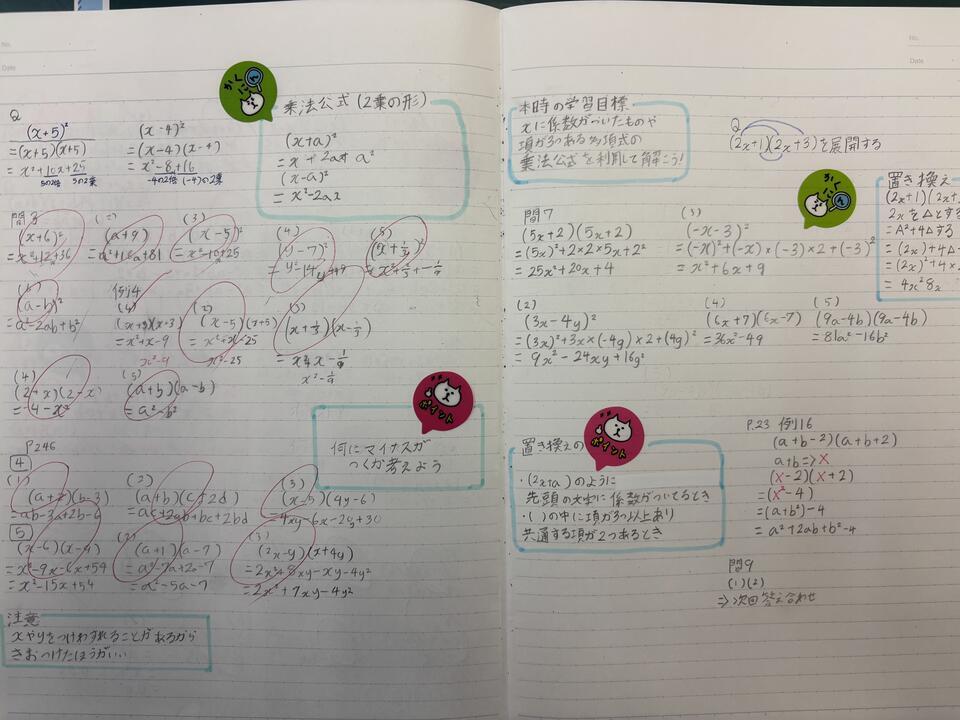 No.
Date
Q
(x+5)²
=(x+5)(x+5)
=x²+10x+25
5の2倍 5の2乗
(x-4)²
=(x-4)(x-4)
=x²-8x+16
-4の2倍 (-4)の2乗
かくにん
乗法公式(2乗の形)
(x+a)²
=x²+2ax+a²
(x-a)²
=x²-2ax
問3
(x+6)²
=x²+12x+36
(2)
(a+9)²
=a²+18a+81
(3)
(x-5)²
=x²-10x+25
(4)
(y-7)²
=y²-14y+49
(5)
(6)
(a-b)²
=a²-2ab+b²
例4
(x+3)(x-3)
=x²+x-9
x²-9
(2)
(x-5)(x+5)
=x²+x-25
x²-25
(3)
(x+1/3)(x-1/3)
x²-1/9
(4)
(2+x)(2-x)
=4-x²
(5)
(a+b)(a-b)
=a²-b²
ポイント
何にマイナスが
つくか考えよう
P246
4
(1)
(a+2)(b-3)
=ab-3a+2b-6
(2)
(a+b)(c+2d)
=ac+2ad+bc+2bd
(3)
(x-5)(4y-6)
=4xy-6x-2y+30
5
(x-6)(x-9)
=x²-9x-6x+54
=x²-15x+54
(2)
(a+1)(a-7)
=a²-7a+a-7
=a²-6a-7
(3)
(2x-y)(x+4y)
=2x²+8xy-xy-4y²
=2x²+7xy-4y²
注意
xやyをつけわすれることがあるから
きおつけたほうがいい
No.
Date
本時の学習目標
xに係数がついたものや
項が3つある多項式の
乗法公式を利用して解こう!
Q
(2x+1)(2x+3)を展開する
かくにん
置き換え
(2x+1)(2x+
2xを△とする
=△²+4△+
=(2x)+4△
=(2x)²+4×2
=4x²8x
問7
(5x+2)(5x+2)
=(5x)²+2×2×5x+2²
=25x²+20x+4
(3)
(-x-3)²
=(-x)²+(-x)×(-3)×2+(-3)²
=x²+6x+9
(2)
(3x-4y)²
=(3x)²+3x×(-4y)×2+(4y)²
=9x²-24xy+16y²
(4)
(6x+7)(6x-7)
=36x²-49
(5)
(9a-4b)(9a-4b)
=81a²-16b²
置き換えの
ポイント
・(2x+a)のように
先頭の文字に係数がついてるとき
・( )の中に項が3つ以上あり
共通する項が2つあるとき
P.23 例16
(a+b-2)(a+b+2)
a+b⇒X
(X-2)(X+2)
=(X²-4)
=(a+b²)-4
=a²+2ab+b²-4
問9
(1)(2)
⇒次回答え合わせ